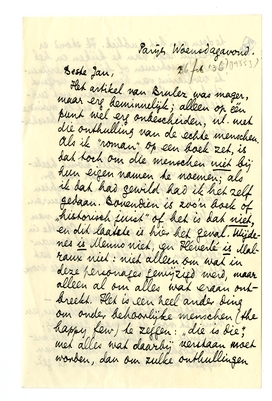 Parijs Woensdagavond.
Beste Jan,
Het artikel van Brulez was mager,
maar erg beminnelijk; alleen op één
punt wel erg onbescheiden, nl. met
die onthulling van de echte menschen.
Als ik "roman" op een boek zet, is
dat toch om die menschen niet bij
hun eigen namen te noemen; als
ik dat had gewild had ik het zelf
gedaan. Bovendien is zoo'n boek of
"historisch juist" of het is dat niet,
en dit laatste is hier het geval. Wijde-
nes is Menno niet, en Héverlé is Mal-
raux niet: niet alleen om wat in
deze personages gewijzigd werd, maar
alleen al om alles wat eraan ont-
breekt. Het is een heel ander ding
om onder behoorlijke menschen (the
happy few) te zeggen: "die is die",
met alles wat daarbij verstaan moet
worden, dan om zulke onthullingen